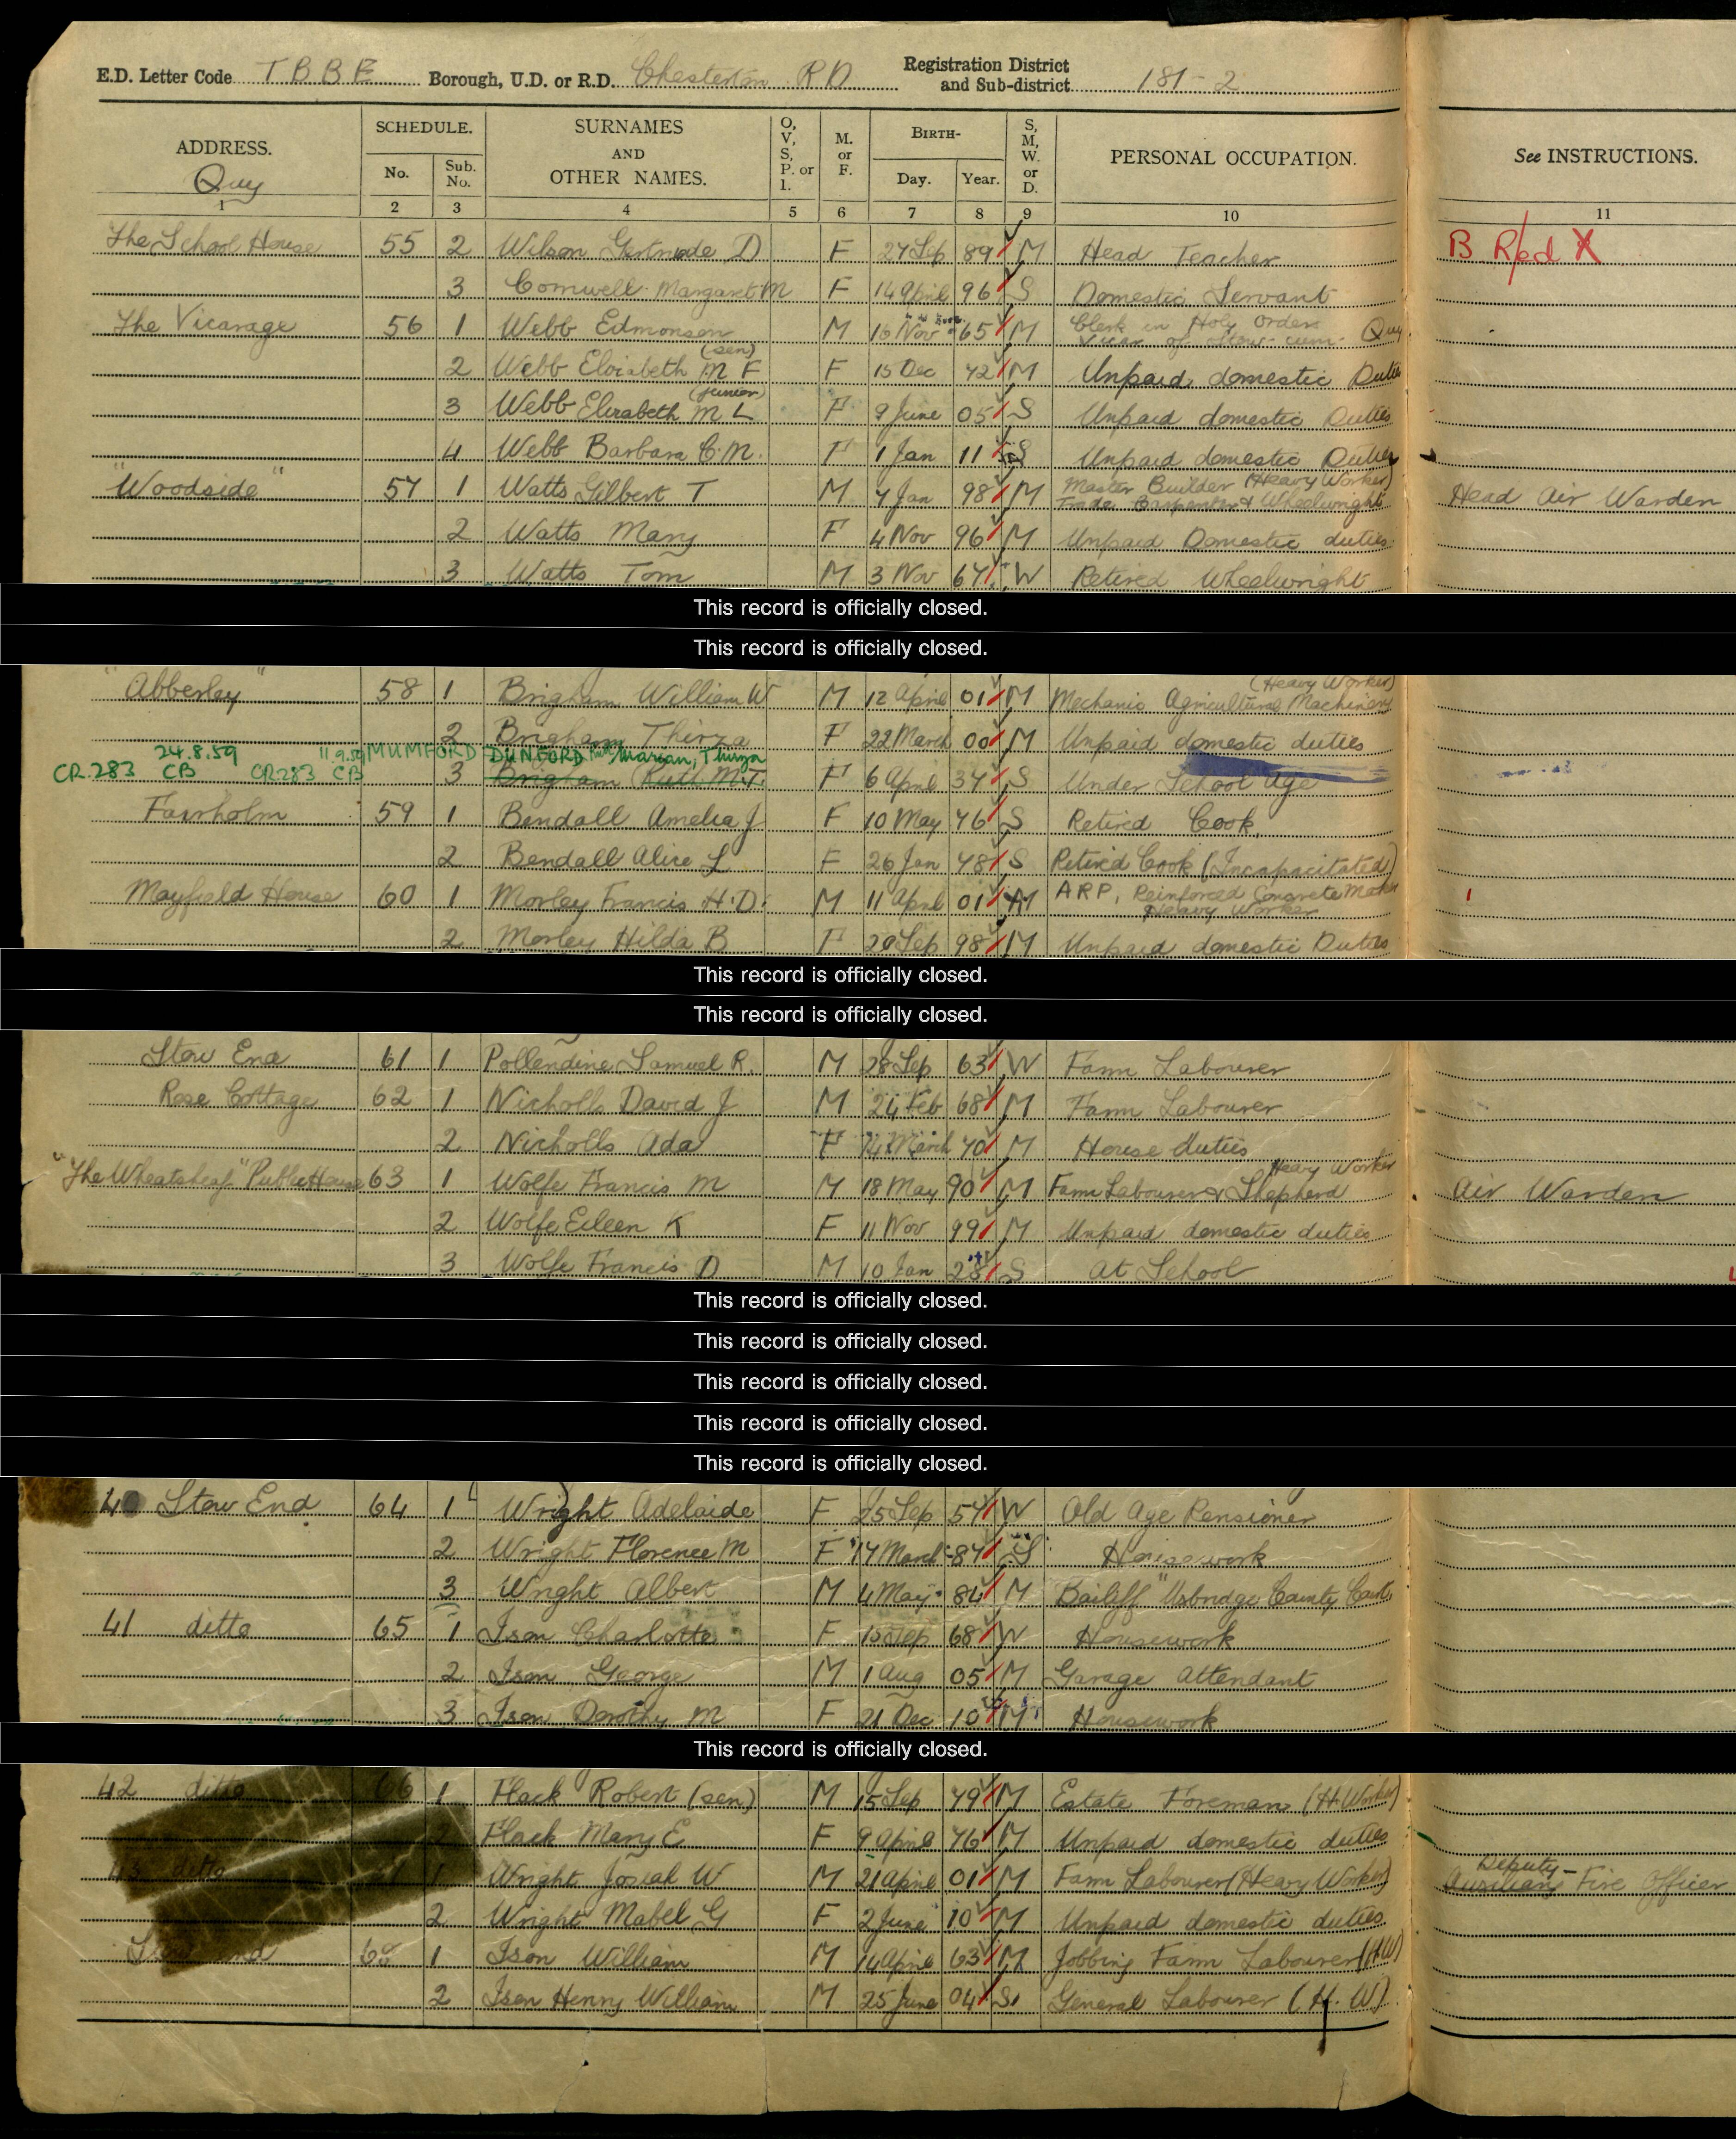 E.D. Letter Code T B B E Borough, U.D. or R.D. Chesterton RD Registration District and Sub-district 181-2
ADDRESS. SCHEDULE. SURNAMES AND OTHER NAMES. O, V, S, P. or I. M. or F. BIRTH- S, M, W. or D. PERSONAL OCCUPATION. See INSTRUCTIONS.
Quy No. Sub. No. Day. Year.
1 2 3 4 5 6 7 8 9 10 11
The School House 55 2 Wilson Gertrude D F 27 Sep 89 M Head Teacher B Red X
3 Cornwell Margaret M F 14 April 96 S Domestic Servant
The Vicarage 56 1 Webb Edmonson M 16 Nov 65 M Clerk in Holy Orders Vicar of Stow-cum- Quy
2 Webb Elizabeth M F (sen) F 15 Dec 72 M Unpaid domestic Duties
3 Webb Elizabeth M L (junior) F 9 June 05 S Unpaid domestic Duties
4 Webb Barbara C. M. F 1 Jan 11 S Unpaid domestic Duties
"Woodside" 57 1 Watts Gilbert T M 7 Jan 98 M Master Builder (Heavy Worker) Trade Carpenter & Wheelwright Head Air Warden
2 Watts Mary F 4 Nov 96 M Unpaid Domestic duties
3 Watts Tom M 3 Nov 67 W Retired Wheelwright
This record is officially closed.
This record is officially closed.
"Abberley" 58 1 Brigham William W M 12 April 01 M Mechanic Agricultural Machinery (Heavy Worker)
2 Brigham Thirza F 22 March 00 M Unpaid domestic duties
24.8.59 11.9.59 MUMFORD DUNFORD Marian, Thirza
CR.283 CB CR283 CB 3 Brigham Ruth M.T. F 6 April 37 S Under School Age
Fairholm 59 1 Bendall Amelia J F 10 May 76 S Retired Cook.
2 Bendall Alice L F 26 Jan 78 S Retired Cook (Incapacitated)
Mayfield House 60 1 Morley Francis H. D. M 11 April 01 M ARP, Reinforced Concrete Maker Heavy Worker
2 Morley Hilda B F 20 Sep 98 M Unpaid domestic Duties
This record is officially closed.
This record is officially closed.
Stow End 61 1 Pollendine Samuel R. M 28 Sep 63 W Farm Labourer
Rose Cottage 62 1 Nicholls David J M 24 Feb 68 M Farm Labourer
2 Nicholls Ada F March 70 M House duties
"The Wheatsheaf" Public House 63 1 Wolfe Francis M M 18 May 90 M Farm Labourer & Shepherd Heavy Worker Air Warden
2 Wolfe Eileen K F 11 Nov 99 M Unpaid domestic duties
3 Wolfe Francis D M 10 Jan 28 S At School
This record is officially closed.
This record is officially closed.
This record is officially closed.
This record is officially closed.
This record is officially closed.
40 Stow End 64 1 Wright Adelaide F 25 Sep 57 W Old Age Pensioner
2 Wright Florence M F 17 March 87 S Housework
3 Wright Albert M 4 May 84 M Bailiff "Uxbridge County Court
41 ditto 65 1 Ison Charlotte F 15 Sep 68 W Housework
2 Ison George M 1 Aug 05 M Garage Attendant
3 Ison Dorothy M F 21 Dec 10 M Housework
This record is officially closed.
42 ditto 66 1 Flack Robert (sen) M 15 Sep 79 M Estate Foreman (H. Worker)
2 Flack Mary E F 9 April 76 M Unpaid domestic duties
43 ditto 1 Wright Josiah W M 21 April 01 M Farm Labourer (Heavy Worker) Deputy - Auxiliary Fire Officer
2 Wright Mabel G F 2 June 10 M Unpaid domestic duties
68 1 Ison William M 14 April 63 M Jobbing Farm Labourer (H.W)
2 Ison Henry William M 25 June 04 S General Labourer (H. W)